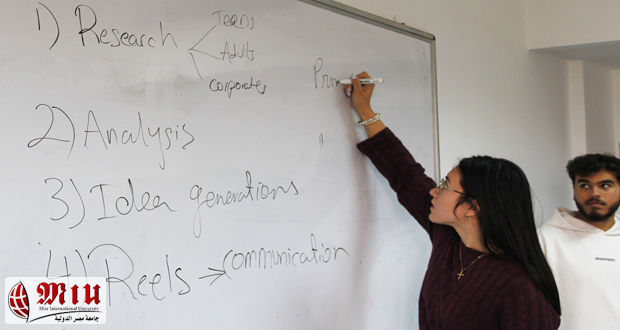 1) Research
Teens
Adult
Corporates
2) Analysis
3) Idea generations
4) Reels → communication
MIU
Misr International University
جامعة مصر الدولية